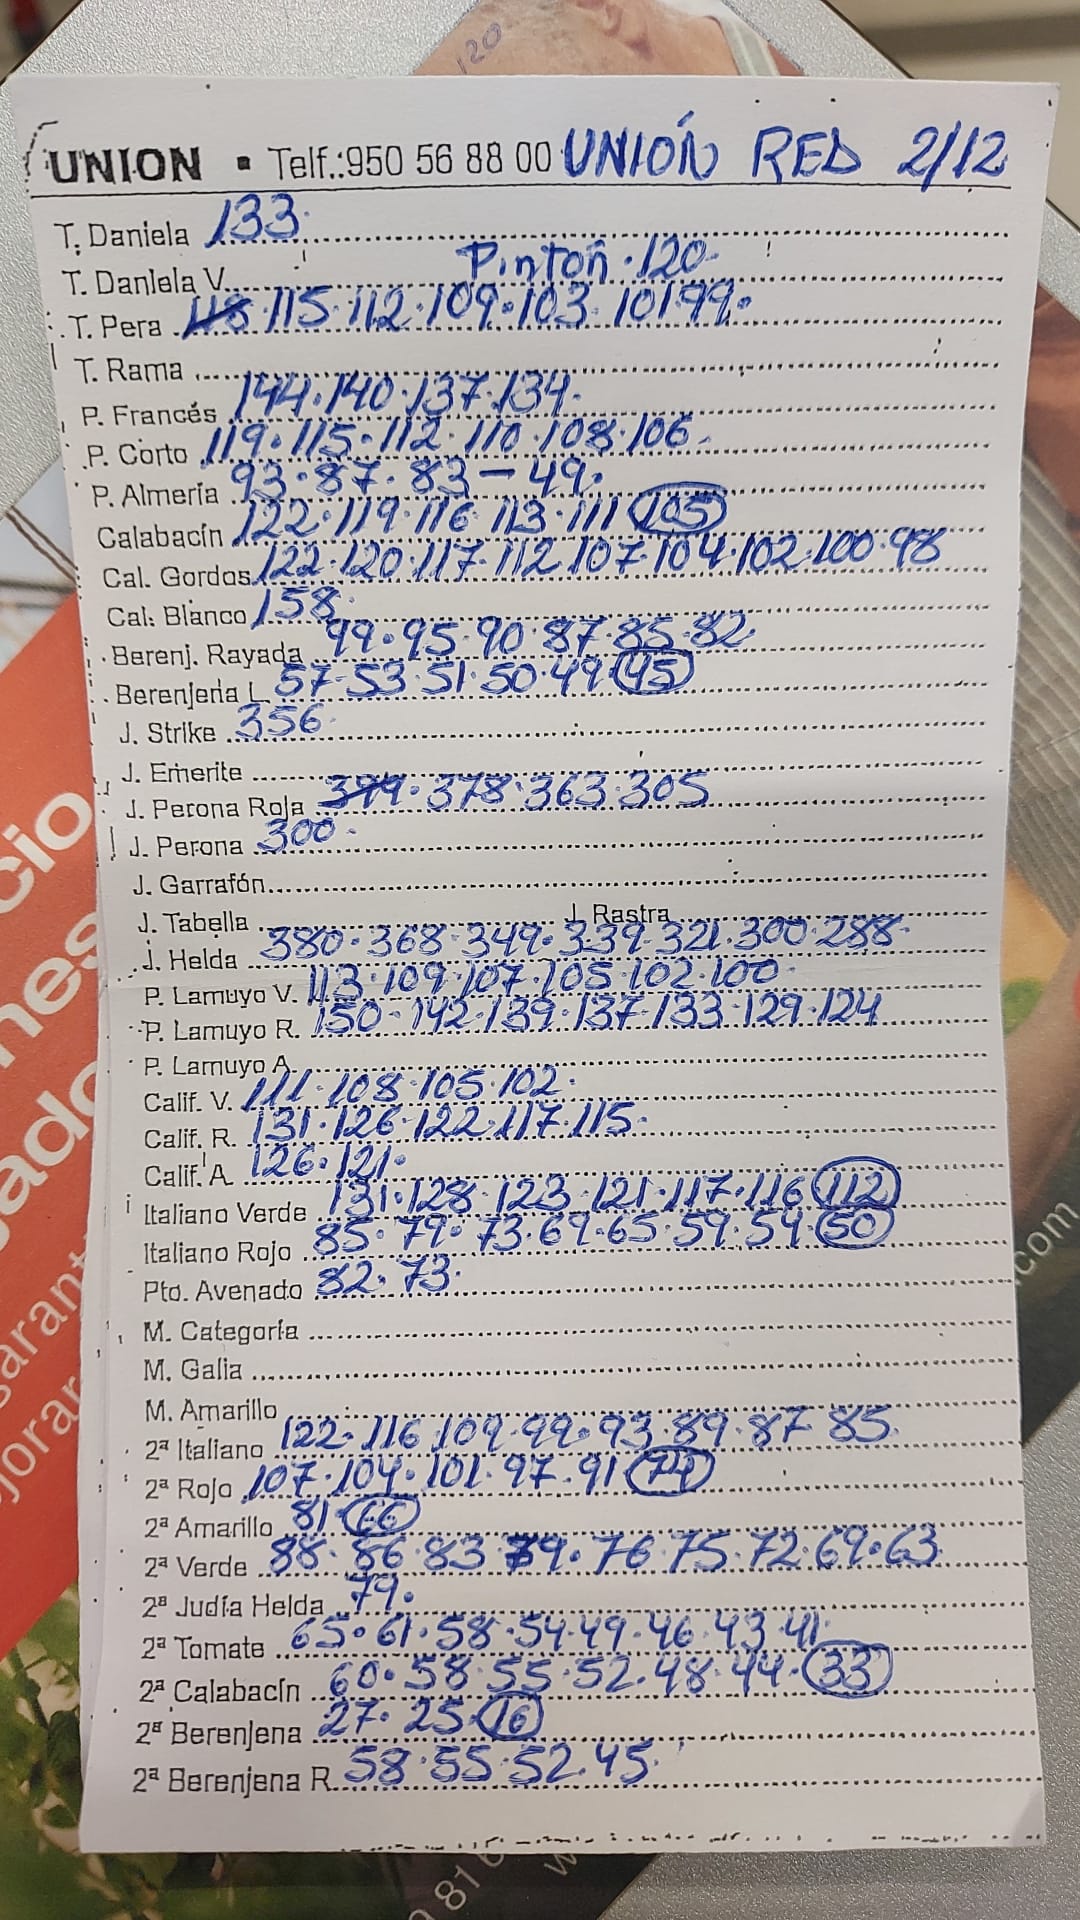 120
UNION · Telf.:950 56 88 00 UNIÓN RED 2/12
T. Daniela 133.
T. Daniela V. Pinton · 120
T. Pera 118 · 115 · 112 · 109 · 103 · 101 99 ·
T. Rama
P. Francés 144 · 140 · 137 · 134 ·
P. Corto 119 · 115 · 112 · 110 · 108 · 106 ·
P. Almería 93 · 87 · 83 – 49 ·
Calabacín 122 · 119 · 116 · 113 · 111 105
Cal. Gordos 122 · 120 · 117 · 112 · 107 · 104 · 102 · 100 · 98
Cal. Blanco 158 ·
Berenj. Rayada 99 · 95 · 90 · 87 · 85 · 82
Berenjena L 57 · 53 · 51 · 50 · 49 45
J. Strike 356 ·
J. Emerite
J. Perona Roja 399 · 378 · 363 · 305
J. Perona 300 ·
J. Garrafón
J. Tabella J. Rastra
J. Helda 380 · 368 · 349 · 339 · 321 · 300 · 288 ·
P. Lamuyo V. 113 · 109 · 107 · 105 · 102 · 100 ·
P. Lamuyo R. 150 · 142 · 139 · 137 · 133 · 129 · 124
P. Lamuyo A.
Calif. V. 111 · 108 · 105 · 102 ·
Calif. R. 131 · 126 · 122 · 117 · 115 ·
Calif. A. 126 · 121 ·
Italiano Verde 131 · 128 · 123 · 121 · 117 · 116 112
Italiano Rojo 85 · 79 · 73 · 69 · 65 · 59 · 54 · 50
Pto. Avenado 82 · 73 ·
M. Categoría
M. Galia
M. Amarillo
2ª Italiano 122 · 116 · 109 · 99 · 93 · 89 · 87 · 85
2ª Rojo 107 · 104 · 101 · 97 · 91 74
2ª Amarillo 81 · 66
2ª Verde 88 · 86 · 83 · 79 · 76 · 75 · 72 · 69 · 63
2ª Judía Helda 79 ·
2ª Tomate 65 · 61 · 58 · 54 · 49 · 46 · 43 · 41 ·
2ª Calabacín 60 · 58 · 55 · 52 · 48 · 44 · 33
2ª Berenjena 27 · 25 · 16
2ª Berenjena R. 58 · 55 · 52 · 45 ·
cio
.com
816